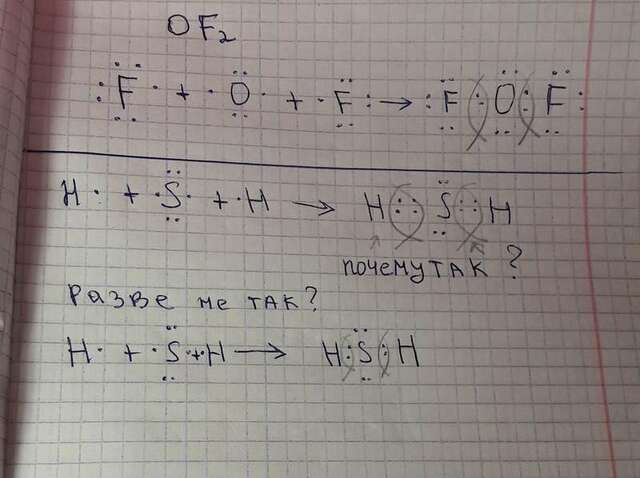 OF₂
:F· + ·O· + ·F: → :F:O:F:
H· + ·S· + ·H → H::S::H
почему так?
Разве не так?
H· + ·S·+·H → H:S:H